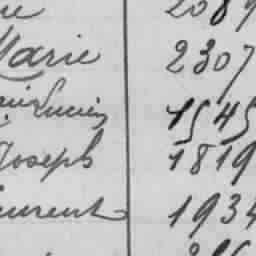 2089
Marie 2307
Lucien 1545
Joseph 1819
Laurent 1934